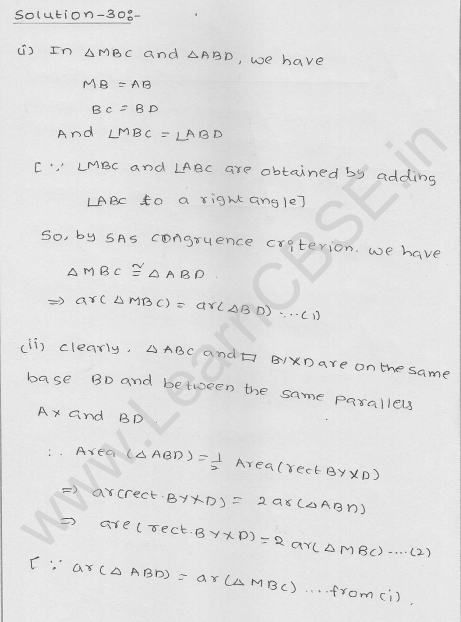 Solution-30:-
(i) In △MBC and △ABD, we have
MB = AB
BC = BD
And ∠MBC = ∠ABD
[∵ ∠MBC and ∠ABC are obtained by adding
∠ABC to a right angle]
So, by SAS congruence criterion. we have
△MBC ≅ △ABD.
⇒ ar(△MBC) = ar(△BD) ....(1)
(ii) clearly. △ABC and ▭ BYXD are on the same
base BD and between the same parallels
AX and BD
∴ Area (△ABD) = 1/2 Area(rect BYXD)
⇒ ar(rect.BYXD) = 2ar(△ABD)
⇒ are(rect.BYXD) = 2 ar(△MBC) ....(2)
[∵ ar(△ABD) = ar(△MBC) ....from(i).
www.LearnCBSE.in